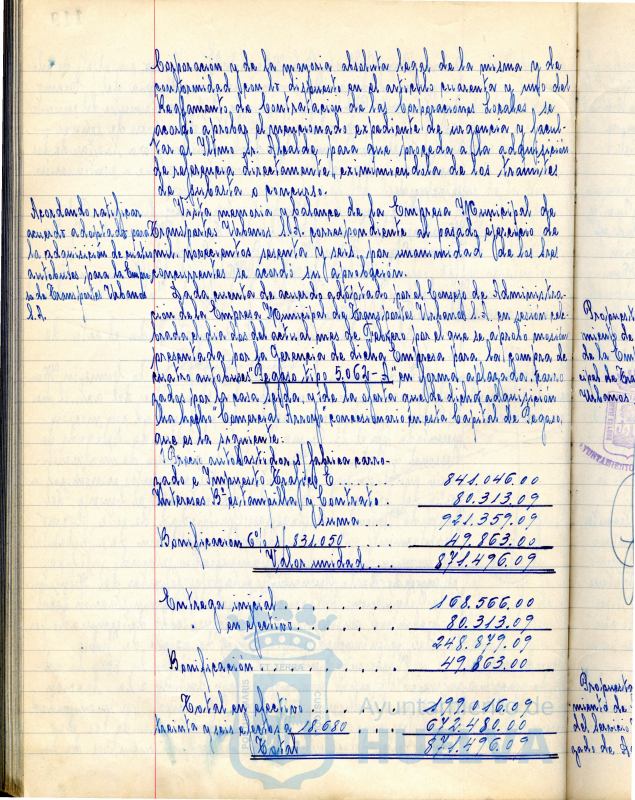 Corporación y de la mayoria absoluta legal de la misma y de
conformidad con lo dispuesto en el articulo cuarenta y uno del
Reglamento de Contratación de las Corporaciones Locales se
acordó aprobar el mencionado expediente de urgencia y facul-
tar al Iltmo Sr. Alcalde para que proceda a la adquisición
de referencia directamente, eximiendola de los tramites
de subasta o concurso.
Acordando ratificar
acuerdo adoptado para
la adquisición de cuatro
autobuses para la Empre
sa de Transportes Urbanos
S.A.
Vista memoria y balance de la Empresa Municipal de
Transportes Urbanos S.A. correspondiente al pasado ejercicio de
mil novecientos sesenta y seis, por unanimidad de los Sres
concurrentes se acordó su aprobación.
Dada cuenta de acuerdo adoptado por el Consejo de Administra-
ción de la Empresa Municipal de Transportes Urbanos S.A. en sesión cele
brada el dia dos del actual mes de Febrero por el que se aprobó moción
presentada por la Gerencia de dicha Empresa para la compra de
cuatro autobuses "Pegaso tipo 5.064-A" en forma aplazada, carro
zados por la casa y de la oferta que de dicha adquisición
ha hecho Comercial concesionario en esta Capital de Pegaso,
que es la siguiente:
Precio autobastidor s/ fabrica carro-
zado e Impuesto Trafico E...... 841.046.00
Intereses Bª estampilla y Contrato. 80.313.09
Suma... 921.359.09
Bonificación 6% s/ 831.050... 49.863.00
Valor unidad.... 871.496.09
Entrega inicial......... 168.566.00
" en efectivo......... 80.313.09
248.879.09
Bonificación........... 49.863.00
Total en efectivo....... 199.016.09
treinta y seis efectos a 18.680 672.480.00
Total 871.496.09
Propuest
miento de
de la Em
cipal de Tra
Urbanos
AYUNTAMIENTO
Propuesta
miento de
del servicio
gado de
Ayuntamiento de
HUELVA